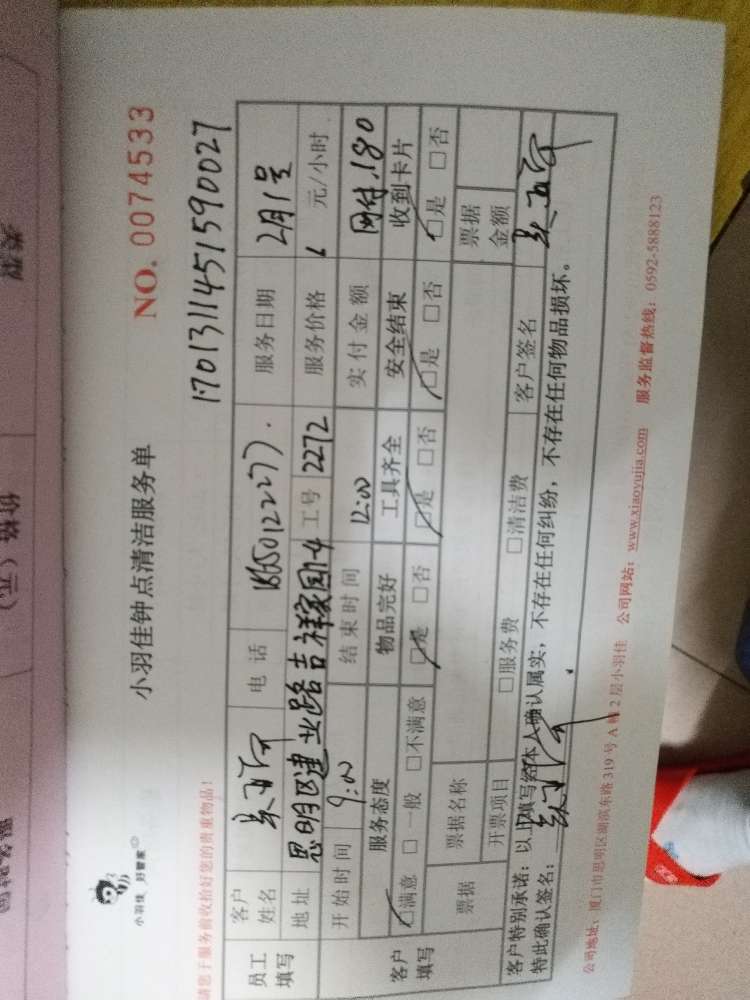 小羽佳 好管家
小羽佳钟点清洁服务单
NO. 0074533
请您于服务前收拾好您的贵重物品!
1701311451590027
员工填写 客户姓名 电话 18650122277. 服务日期 2月1号
地址 思明区建业路吉祥家园1-4 工号 2272 服务价格 元/小时
开始时间 9:00 结束时间 12:00 实付金额 网付.180
客户填写 服务态度 物品完好 工具齐全 安全结束 收到卡片
□满意 □一般 □不满意 □是 □否 □是 □否 □是 □否 □是 □否
票据 票据名称 票据金额
开票项目 □服务费 □清洁费 客户签名
客户特别承诺:以上填写经本人确认属实,不存在任何纠纷,不存在任何物品损坏。
特此确认签名:
公司地址:厦门市思明区湖滨东路319号A幢2层小羽佳 公司网站:www.xiaoyujia.com 服务监督热线:0592-5888123
价格(元)